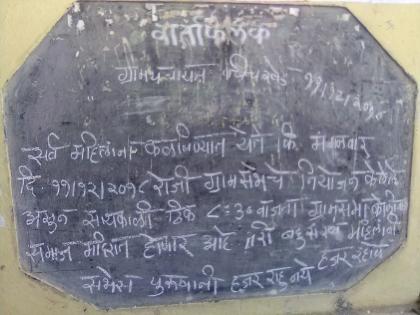 वार्ताफलक
ग्रामपंचायत ११/१२/२०१८
सर्व महिलांना कळविण्यात येते कि मंगळवार
दि. ११/१२/२०१८ रोजी ग्रामसभेचे नियोजन केलेले
असुन सायंकाळी ठिक ८:३० वाजता ग्रामसभा
समाज मंदिरात होणार आहे तरी बहुसंख्य महिलांनी
सभेस पुरुषांनी हजर राहु नये हजर रहावे